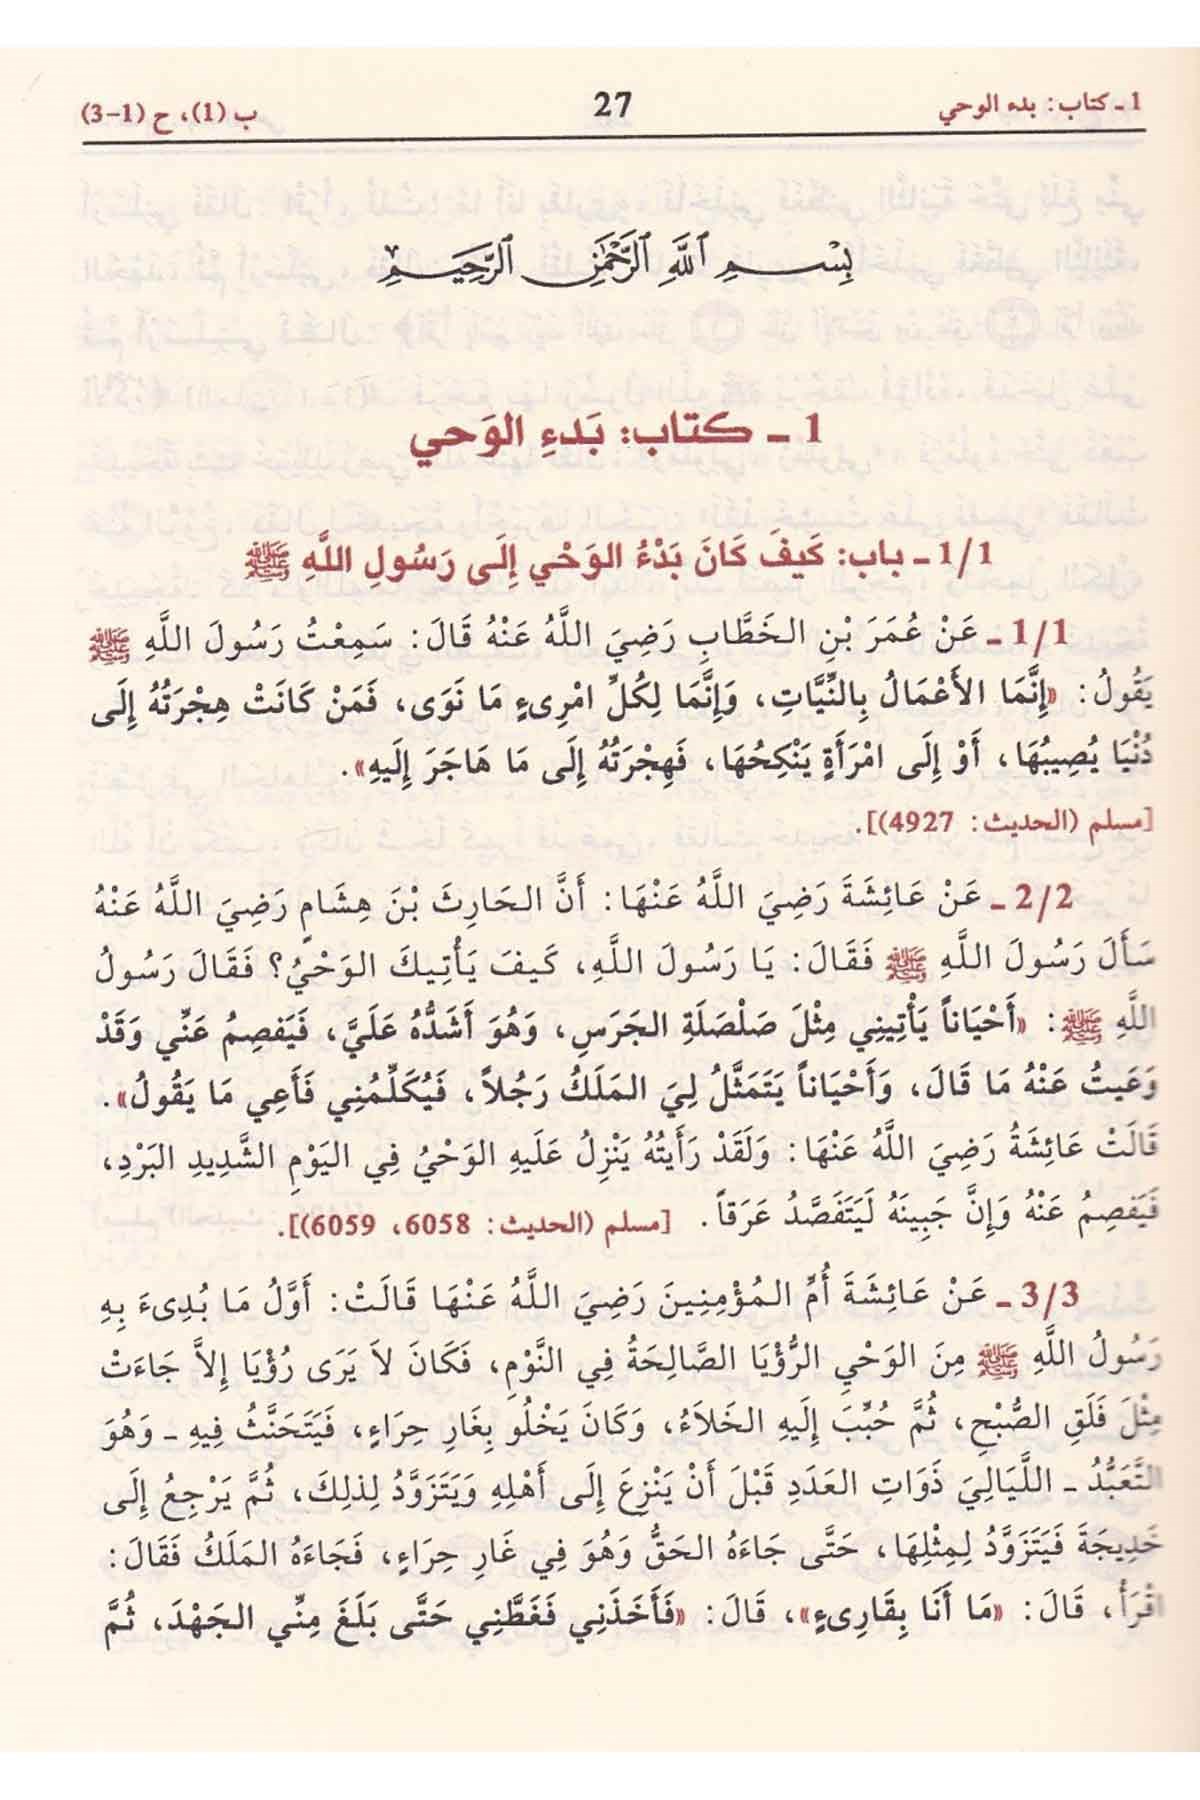 1 ـ كتاب: بدء الوحي
27
ب (1)، ح (1-3)
بِسْمِ اللَّهِ الرَّحْمَٰنِ الرَّحِيمِ
1 ـ كتاب: بَدءِ الوَحي
1/1 ـ باب: كَيفَ كَانَ بَدْءُ الوَحْيِ إِلَى رَسُولِ اللَّهِ ﷺ
1/1 ـ عَنْ عُمَرَ بْنِ الخَطَّابِ رَضِيَ اللَّهُ عَنْهُ قَالَ: سَمِعْتُ رَسُولَ اللَّهِ ﷺ
يَقُولُ: «إِنَّمَا الأَعْمَالُ بِالنِّيَّاتِ، وَإِنَّمَا لِكُلِّ امْرِىءٍ مَا نَوَى، فَمَنْ كَانَتْ هِجْرَتُهُ إِلَى
دُنْيَا يُصِيبُهَا، أَوْ إِلَى امْرَأَةٍ يَنْكِحُهَا، فَهِجْرَتُهُ إِلَى مَا هَاجَرَ إِلَيهِ».
[مسلم (الحديث: 4927)].
2/2 ـ عَنْ عَائِشَةَ رَضِيَ اللَّهُ عَنْهَا: أَنَّ الحَارِثَ بْنَ هِشَامٍ رَضِيَ اللَّهُ عَنْهُ
سَأَلَ رَسُولَ اللَّهِ ﷺ فَقَالَ: يَا رَسُولَ اللَّهِ، كَيفَ يَأْتِيكَ الوَحْيُ؟ فَقَالَ رَسُولُ
اللَّهِ ﷺ: «أَحْيَاناً يَأْتِينِي مِثْلَ صَلْصَلَةِ الجَرَسِ، وَهُوَ أَشَدُّهُ عَلَيَّ، فَيَفصِمُ عَنِّي وَقَدْ
وَعَيتُ عَنْهُ مَا قَالَ، وَأَحْيَاناً يَتَمَثَّلُ لِيَ المَلَكُ رَجُلاً، فَيُكَلِّمُنِي فَأَعِي مَا يَقُولُ».
قَالَتْ عَائِشَةُ رَضِيَ اللَّهُ عَنْهَا: وَلَقَدْ رَأَيتُهُ يَنْزِلُ عَلَيهِ الوَحْيُ فِي اليَوْمِ الشَّدِيدِ البَرْدِ،
فَيَفصِمُ عَنْهُ وَإِنَّ جَبِينَهُ لَيَتَفَصَّدُ عَرَقاً. [مسلم (الحديث: 6058، 6059)].
3/3 ـ عَنْ عَائِشَةَ أُمِّ المُؤْمِنِينَ رَضِيَ اللَّهُ عَنْهَا قَالَتْ: أَوَّلُ مَا بُدِىءَ بِهِ
رَسُولُ اللَّهِ ﷺ مِنَ الوَحْيِ الرُّؤْيَا الصَّالِحَةُ فِي النَّوْمِ، فَكَانَ لاَ يَرَى رُؤْيَا إِلاَّ جَاءَتْ
مِثْلَ فَلَقِ الصُّبْحِ، ثُمَّ حُبِّبَ إِلَيهِ الخَلاَءُ، وَكَانَ يَخْلُو بِغَارِ حِرَاءٍ، فَيَتَحَنَّثُ فِيهِ ـ وَهُوَ
التَّعَبُّدُ ـ اللَّيَالِيَ ذَوَاتِ العَدَدِ قَبْلَ أَنْ يَنْزِعَ إِلَى أَهْلِهِ وَيَتَزَوَّدُ لِذلِكَ، ثُمَّ يَرْجِعُ إِلَى
خَدِيجَةَ فَيَتَزَوَّدُ لِمِثْلِهَا، حَتَّى جَاءَهُ الحَقُّ وَهُوَ فِي غَارِ حِرَاءٍ، فَجَاءَهُ المَلَكُ فَقَالَ:
اقْرَأْ، قَالَ: «مَا أَنَا بِقَارِىءٍ»، قَالَ: «فَأَخَذَنِي فَغَطَّنِي حَتَّى بَلَغَ مِنِّي الجَهْدَ، ثُمَّ